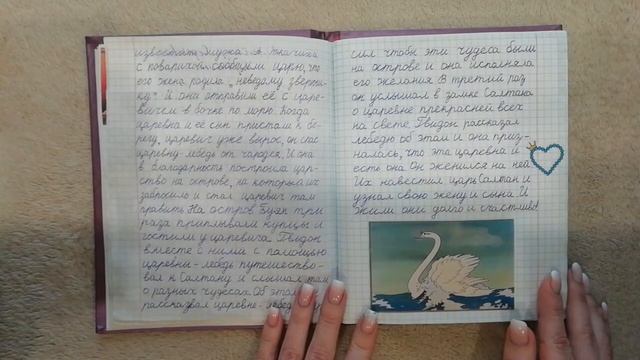 известить Ткачиха
с поварихой сообщили царю, что
его жена родила "неведому зверюш-
ку". И они отправили её с царе-
вичем в бочке по морю. Когда
царевна и её сын пристали к бе-
регу, царевич уже вырос, он спас
царевну-лебедь от чародея. И она
в благодарность построила цар-
ство на острове, на который их
забросило и стал царевич там
править. На остров Буян три
раза приплывали купцы и
гостили у царевича. Гвидон
вместе с ними с помощью
царевны-лебедь путешество-
вал к Салтану и слышал там
о разных чудесах. Об этом
рассказал царевне-лебедь
сил чтобы эти чудеса были
на острове и она исполняла
его желания. В третий раз
он услышал в замке Салтана
о царевне прекрасней всех
на свете. Гвидон рассказал
лебедю об этом и она приз-
налась, что эта царевна и
есть она. Он женился на ней
Их навестил царь Салтан и
узнал свою жену и сына. И
жили они долго и счастливо!